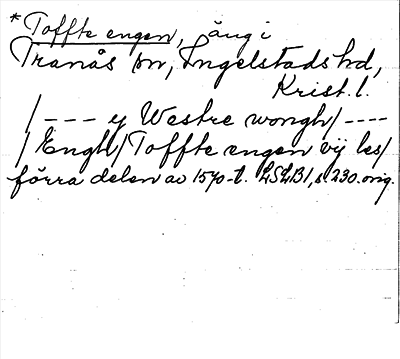 * Toffte engen, äng i
Tranås sn, Ingelstads hd,
Krist. l.
/ - - - y Westre wongh/ - - - -
/ Engh/ Toffte engen vij les/
förra delen av 1570-t. LSLB1, s. 230. orig.